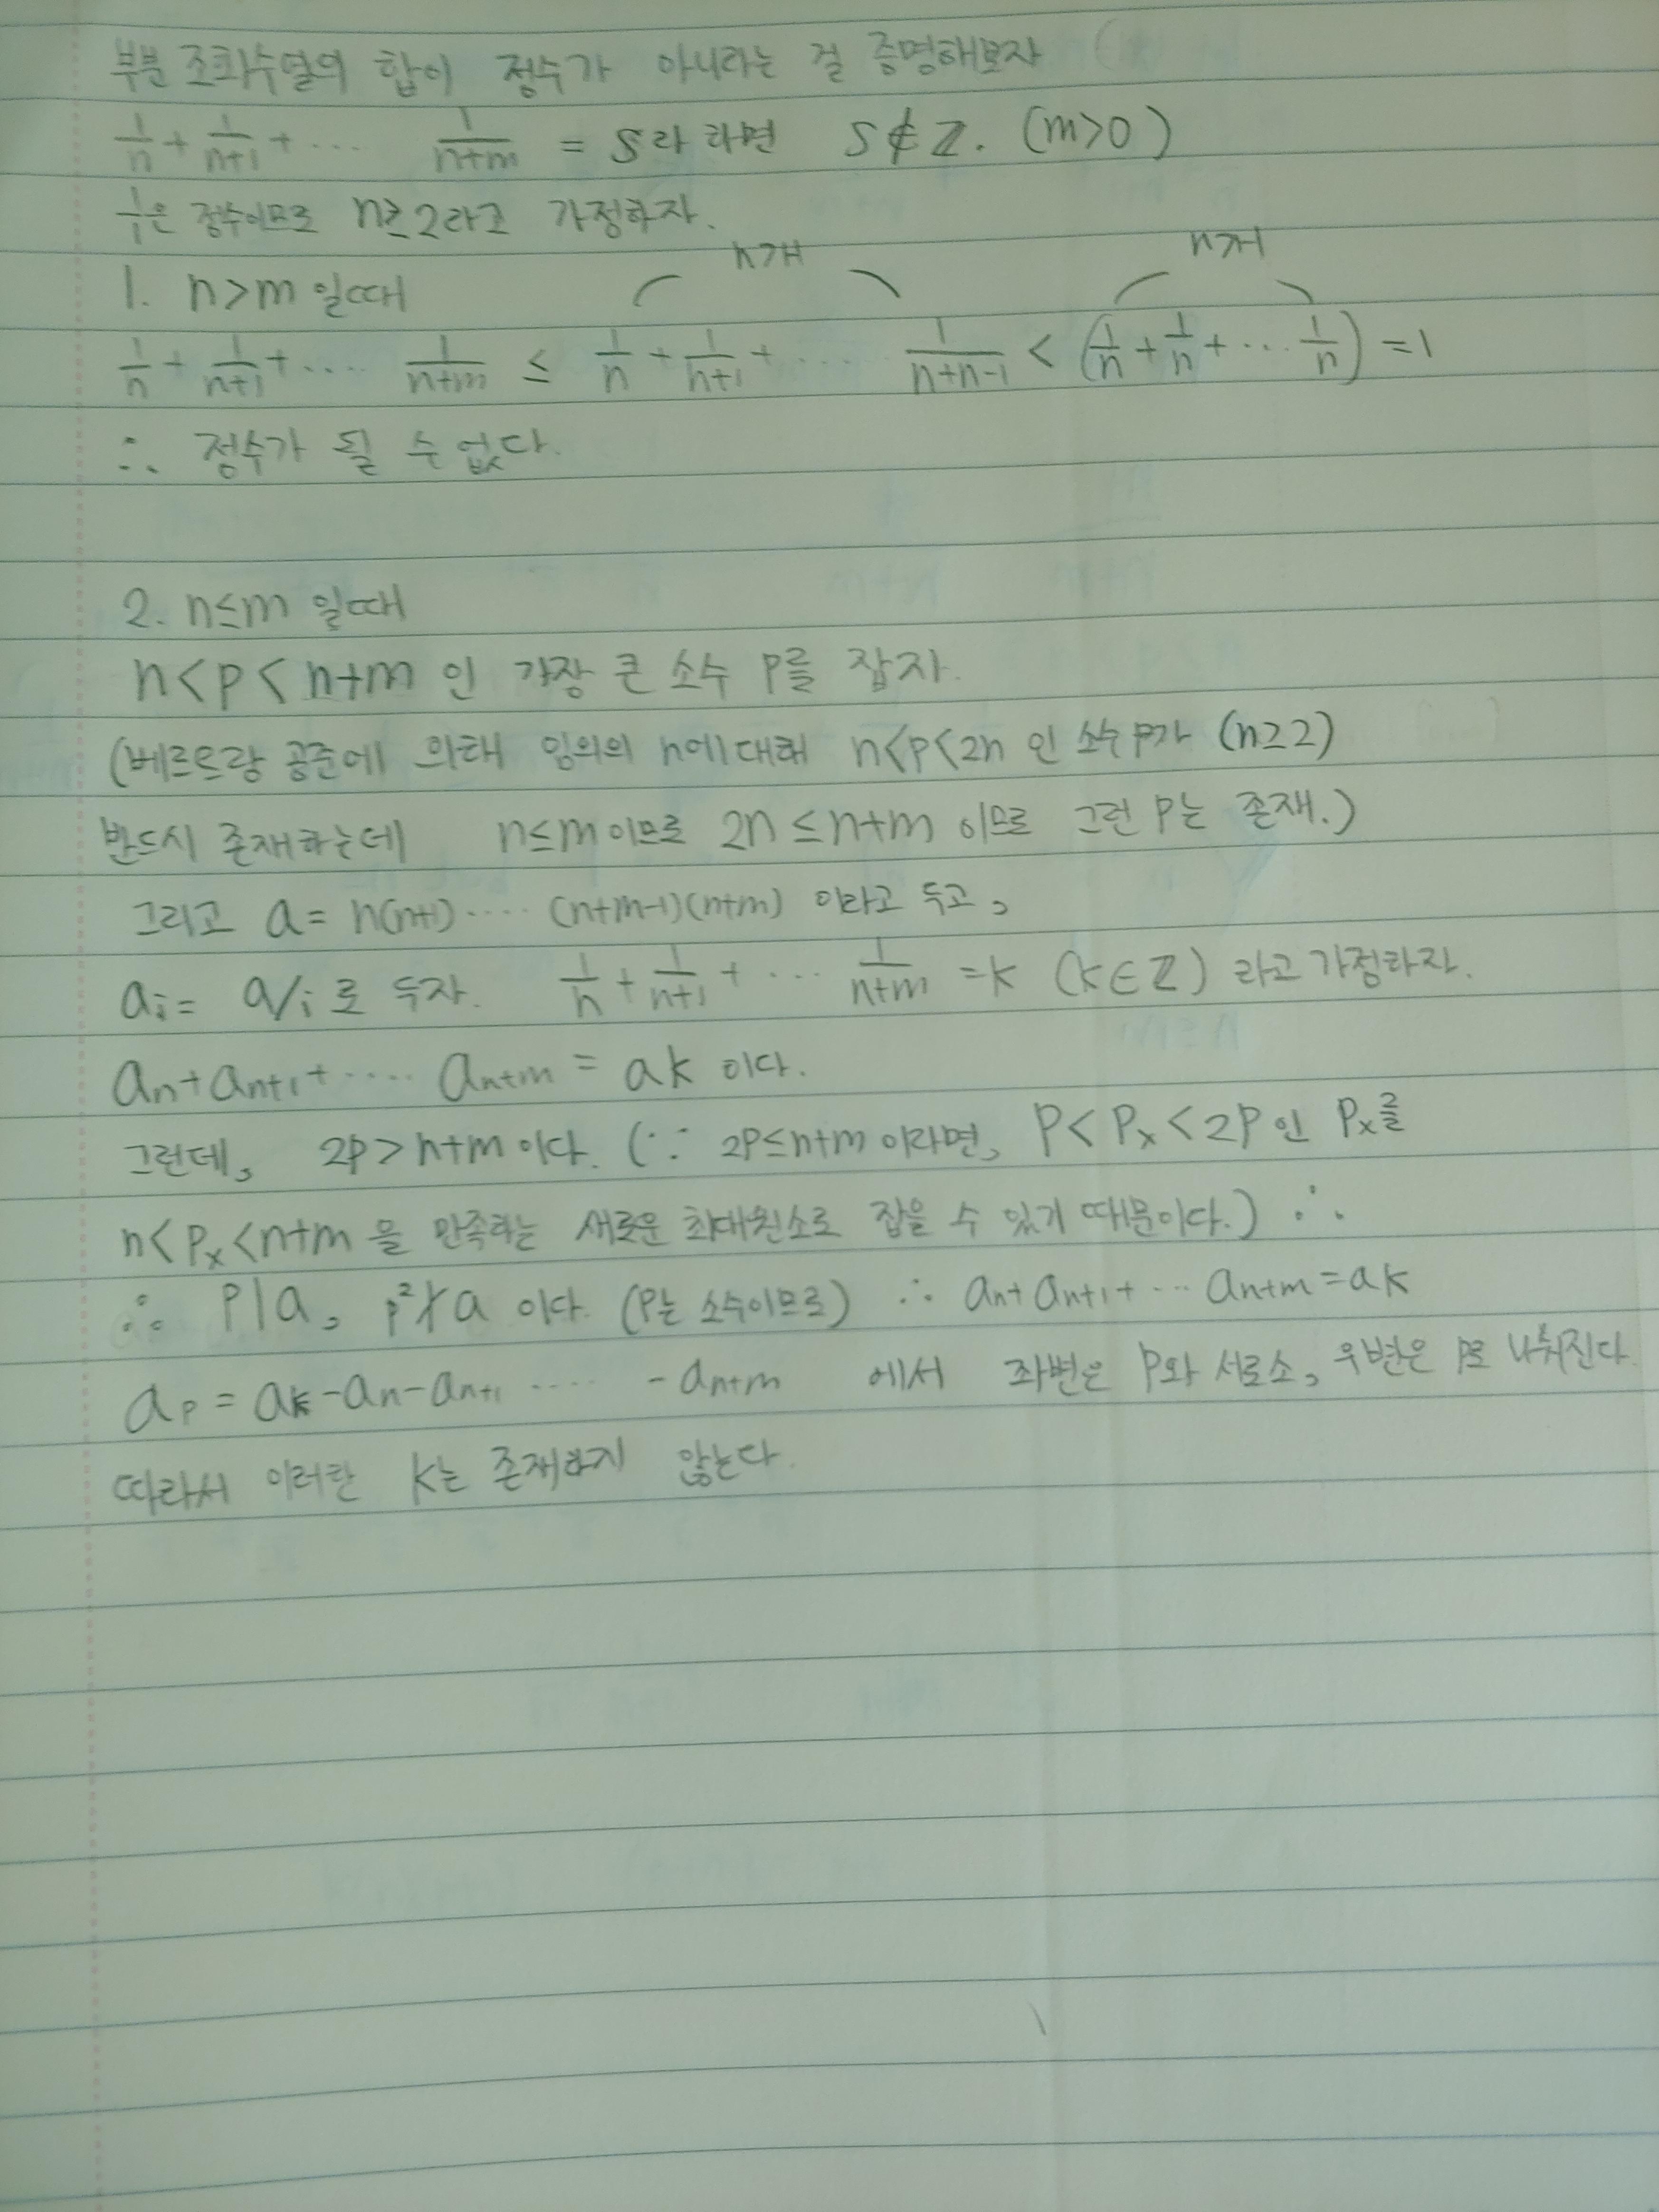 부분 조화수열의 합이 정수가 아니라는 걸 증명해보자
1/n + 1/(n+1) + ··· 1/(n+m) = S라 하면 S∉Z. (m>0)
1/1은 정수이므로 n≥2라고 가정하자.
1. n>m 일때
n개 n개
1/n + 1/(n+1) + ···· 1/(n+m) ≤ 1/n + 1/(n+1) + ···· 1/(n+n-1) < (1/n + 1/n + ··· 1/n) = 1
∴ 정수가 될 수 없다.
2. n≤m 일때
n<p<n+m 인 가장 큰 소수 p를 잡자.
(베르트랑 공준에 의해 임의의 n에 대해 n<p<2n 인 소수 p가 (n≥2)
반드시 존재하는데 n≤m이므로 2n ≤n+m 이므로 그런 p는 존재.)
그리고 a= n(n+1)···· (n+m-1)(n+m) 이라고 두고,
aᵢ= a/i로 두자. 1/n + 1/(n+1) + ··· 1/(n+m) =k (k∈Z) 라고 가정하자.
aₙ+aₙ₊₁+···· aₙ₊ₘ = ak 이다.
그런데, 2p>n+m이다. (∵ 2p≤n+m 이라면, p<pₓ<2p인 pₓ를
n<pₓ<n+m 을 만족하는 새로운 최대원소로 잡을 수 있기 때문이다.) ∴
∴ p|a, p²∤a 이다. (p는 소수이므로) ∴ aₙ+aₙ₊₁+··· aₙ₊ₘ=ak
aₚ = ak-aₙ-aₙ₊₁ ···· -aₙ₊ₘ 에서 좌변은 p와 서로소, 우변은 p로 나눠진다.
따라서 이러한 k는 존재하지 않는다.